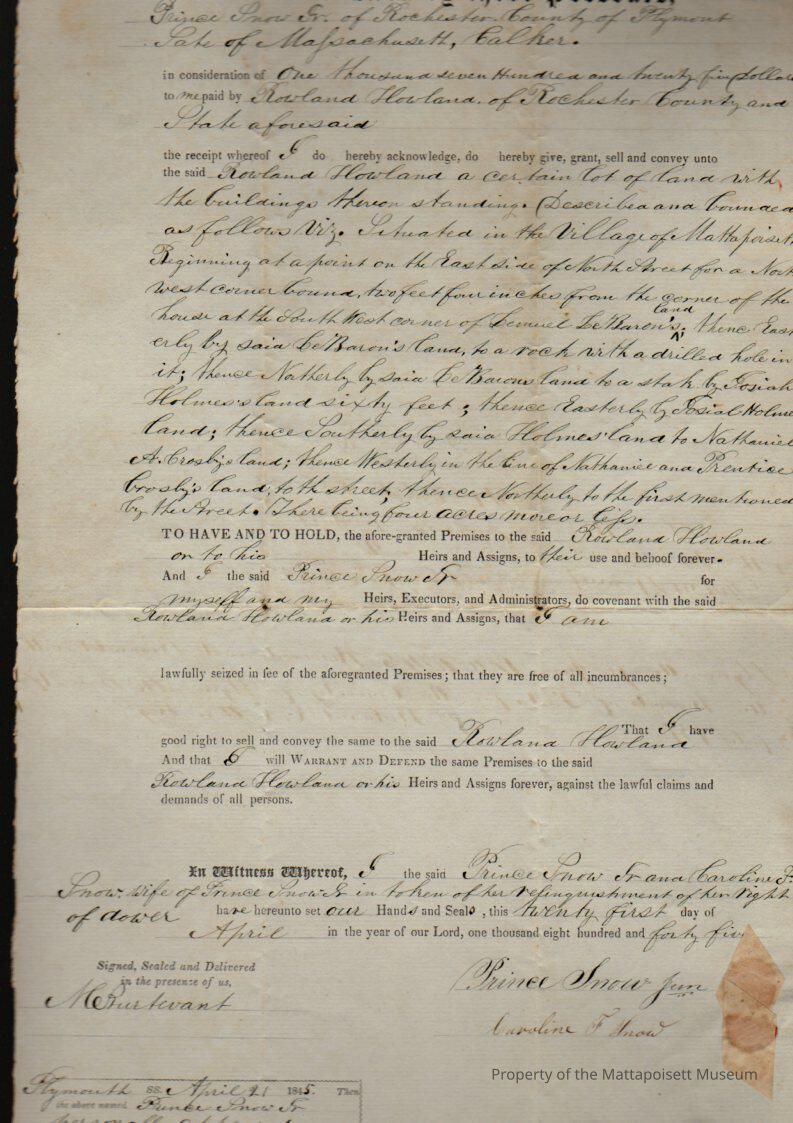 Prince Snow Jr. of Rochester County of Plymout
Sate of Massachusett, Calker.
in consideration of One thousand seven Hundred and twenty five Dollars
to me paid by Rowland Howland. of Rochester County and
State aforesaid
the receipt whereof I do hereby acknowledge, do hereby give, grant, sell and convey unto
the said Rowland Howland a certain lot of land with
the buildings thereon standing. (Described and bounded
as follows Viz. Situated in the Village of Mattapoisett
Beginning at a point on the East side of North Street for a North
west corner bound, two feet four inches from the corner of the
house at the South West corner of Lemuel LeBaron's land; thence East
erly by said LeBaron's land, to a rock with a drilled hole in
it; thence Notherly by said LeBarons land to a stake by Josiah
Holmes's land sixty feet; thence Easterly by Josiah Holmes
land; thence Southerly by said Holmes' land to Nathaniel
A. Crosby's land; thence Westerly in the line of Nathaniel and Prentice
Crosby's land, to the street, thence Notherly to the first mentioned
by the Street. There being four acres more or less.
TO HAVE AND TO HOLD, the afore-granted Premises to the said Rowland Howland
or to his Heirs and Assigns, to their use and behoof forever.
And I the said Prince Snow Jr for
myself and my Heirs, Executors, and Administrators, do covenant with the said
Rowland Howland or his Heirs and Assigns, that I am
lawfully seized in fee of the aforegranted Premises; that they are free of all incumbrances;
That I have
good right to sell and convey the same to the said Rowland Howland
And that I will WARRANT AND DEFEND the same Premises to the said
Rowland Howland or his Heirs and Assigns forever, against the lawful claims and
demands of all persons.
In Witness Whereof, I the said Prince Snow Jr and Caroline F.
Snow. wife of Prince Snow Jr in token of her relinquishment of her right
of dower have hereunto set our Hands and Seals, this twenty first day of
April in the year of our Lord, one thousand eight hundred and forty five
Signed, Sealed and Delivered
in the presence of us,
Prince Snow Jun
Caroline F Snow
Property of the Mattapoisett Museum
Plymouth SS. April 21 1845. Then
the above named Prince Snow Jr